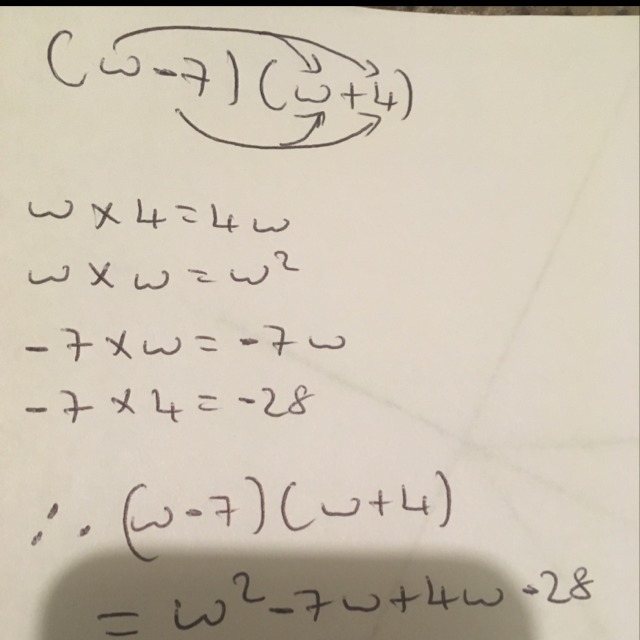 (w-7)(w+4)
w×4=4w
w×w=w²
-7×w=-7w
-7×4=-28
∴ (w-7)(w+4)
= w²-7w+4w-28